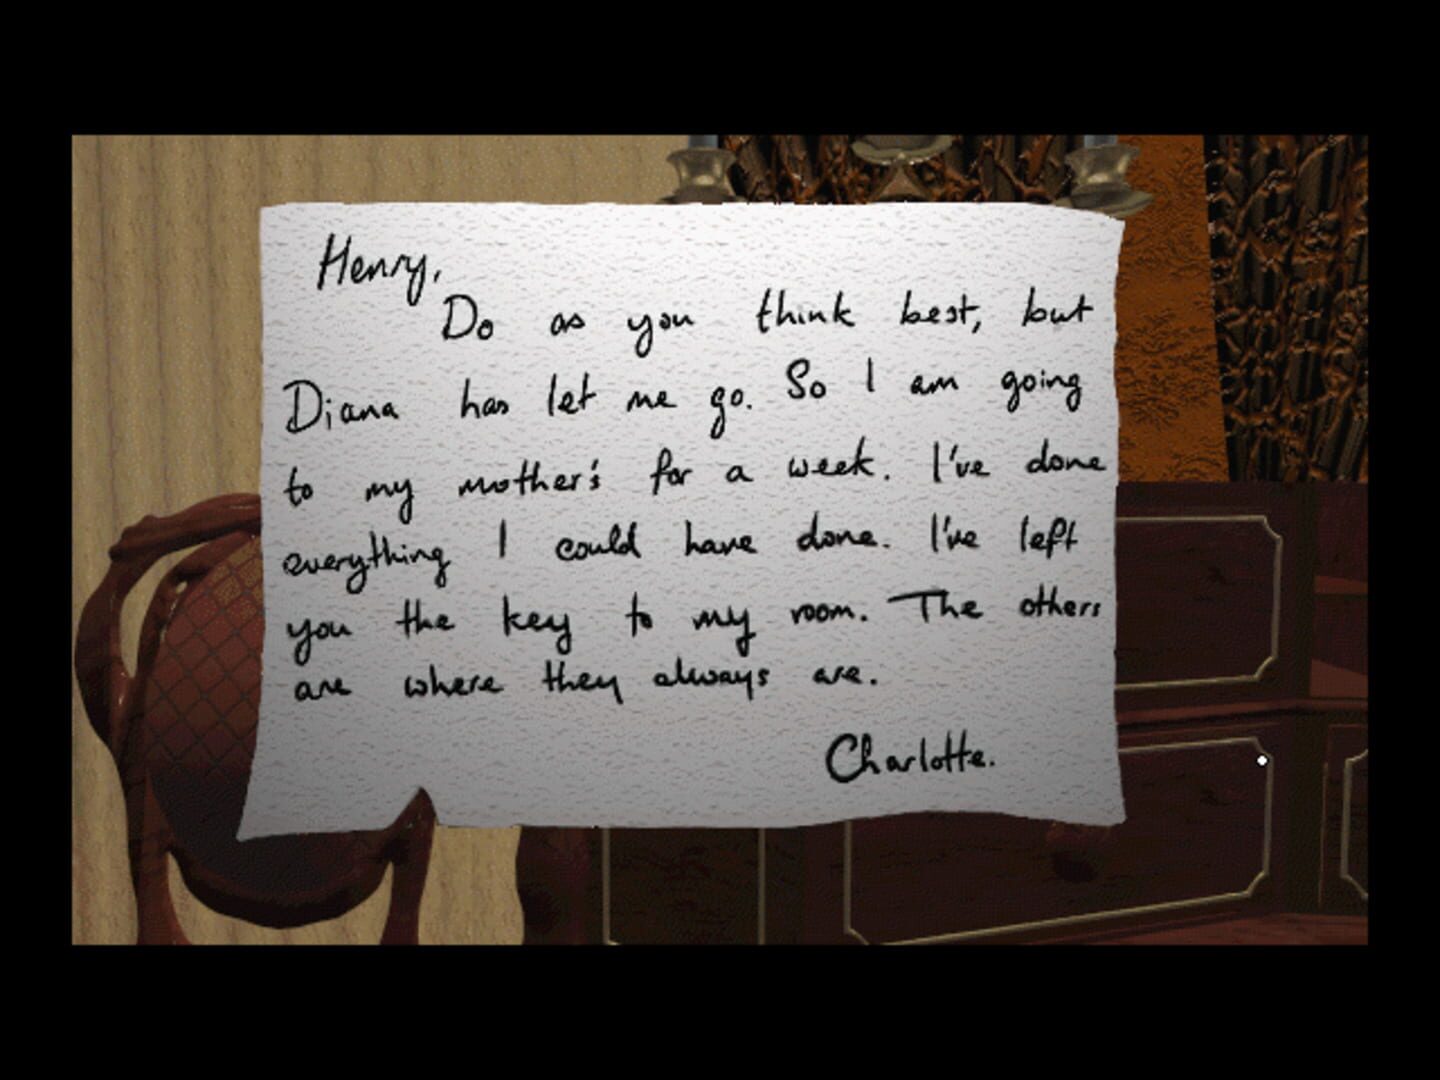 Henry,
Do as you think best, but
Diana has let me go. So I am going
to my mother's for a week. I've done
everything I could have done. I've left
you the key to my room. The others
are where they always are.
Charlotte.